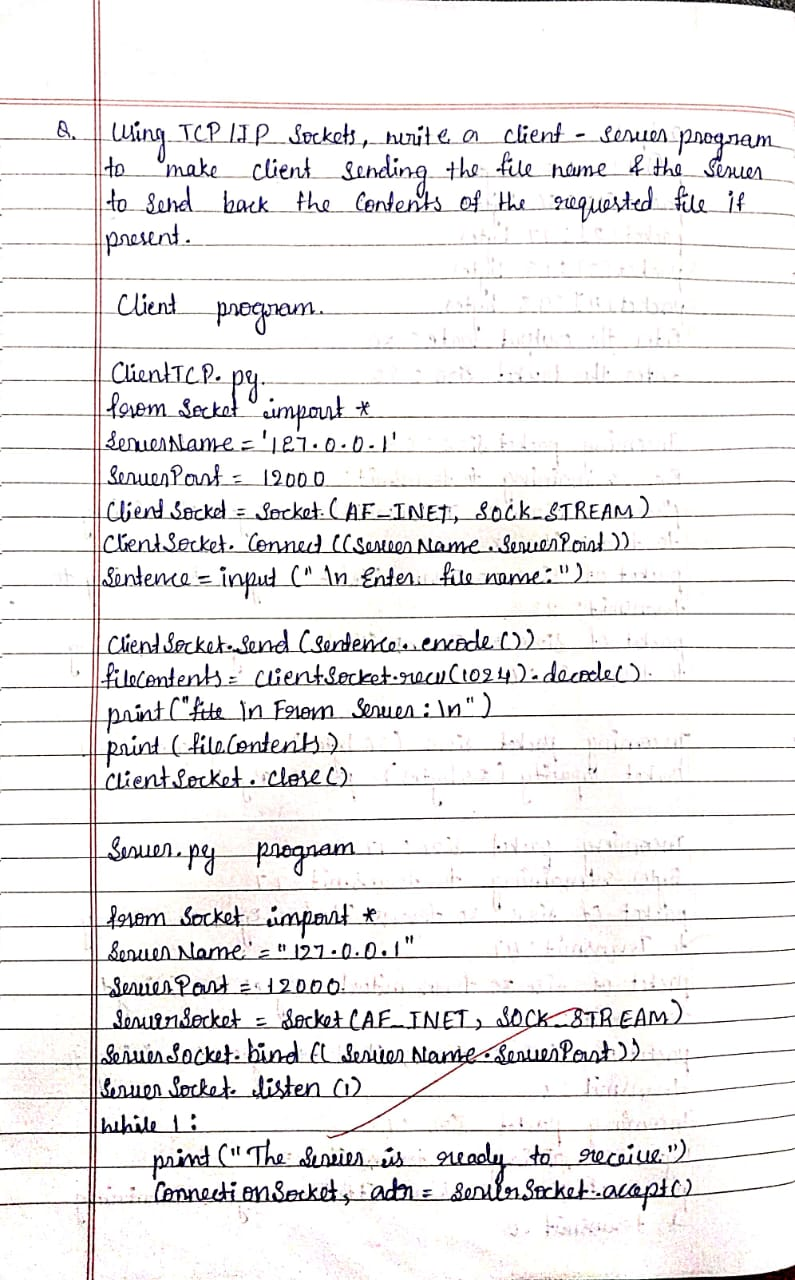 Q. Using TCP/IP Sockets, write a client - server program
to make client sending the file name & the server
to send back the contents of the requested file if
present.
Client program.
ClientTCP.py.
from Socket import *
ServerName = '127.0.0.1'
ServerPort = 12000
Client Socket = Socket (AF_INET, SOCK_STREAM)
ClientSocket. Connect ((Server Name . ServerPort))
Sentence = input (" \n Enter file name:")
Client Socket. Send (Sentence. encode ())
fileContents = ClientSocket.recv(1024).decode().
print ("file \n From Server : \n")
print (fileContents)
Client Socket. close ()
Server.py program
from Socket import *
Server Name = "127.0.0.1"
ServerPort = 12000
ServerSocket = Socket (AF_INET, SOCK_STREAM)
Server Socket. bind (( Server Name . ServerPort))
Server Socket. listen (1)
while 1 :
print (" The Server is ready to receive")
Connection Socket, adr = ServerSocket.acept()